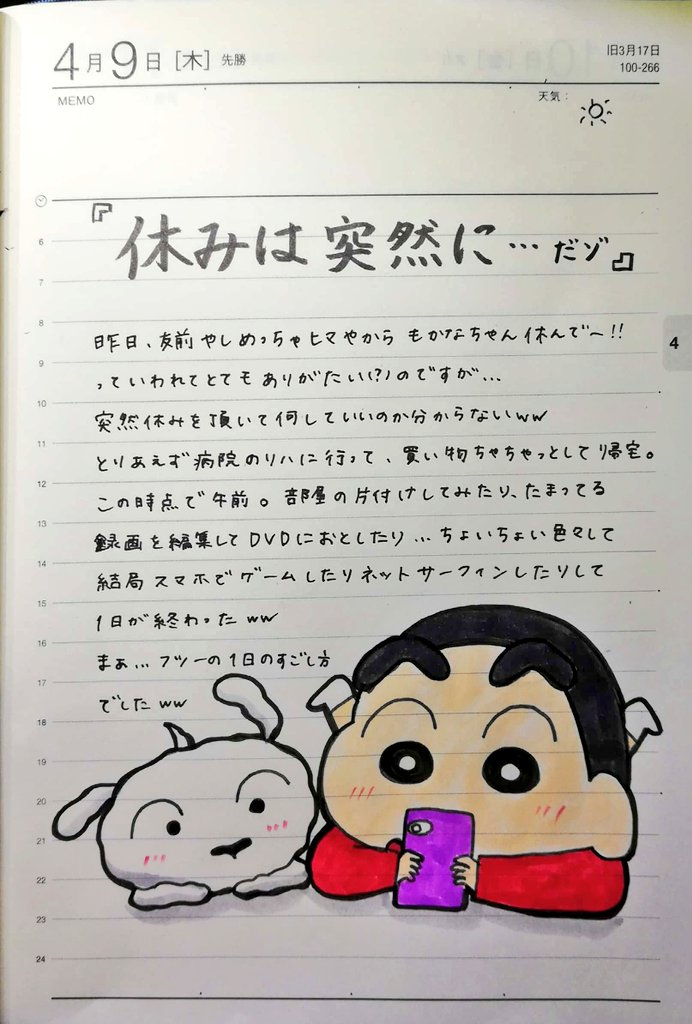 4月9日［木］先勝
旧3月17日
100-266
MEMO
天気：
『休みは突然に…だゾ』
昨日、友前やしめっちゃヒマやから もかなちゃん休んで〜!!
っていわれてとてもありがたい(?)のですが…
突然休みを頂いて何していいのか分からないww
とりあえず病院のリハに行って、買い物ちゃちゃっとして帰宅。
この時点で午前。部屋の片付けしてみたり、たまってる
録画を編集してDVDにおとしたり…ちょいちょい色々して
結局スマホでゲームしたりネットサーフィンしたりして
1日が終わったww
まぁ…フツーの1日のすごし方
でしたww
6
7
8
9
10
11
12
13
14
15
16
17
18
19
20
21
22
23
24
4